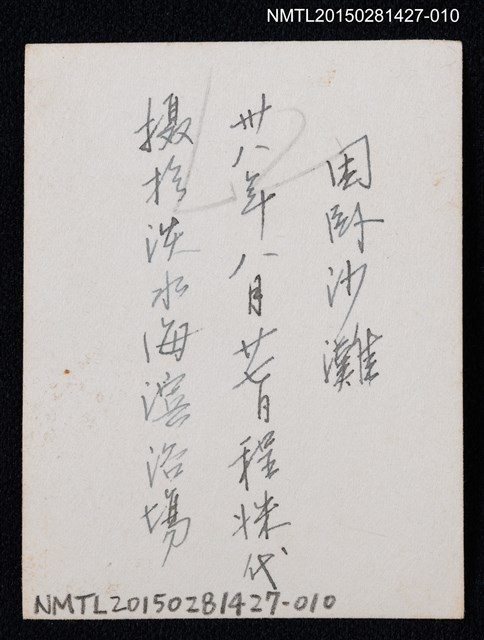 NMTL20150281427-010
困卧沙灘
卅八年八月廿七日程妹代
摄於淡水海滨浴場
NMTL20150281427-010